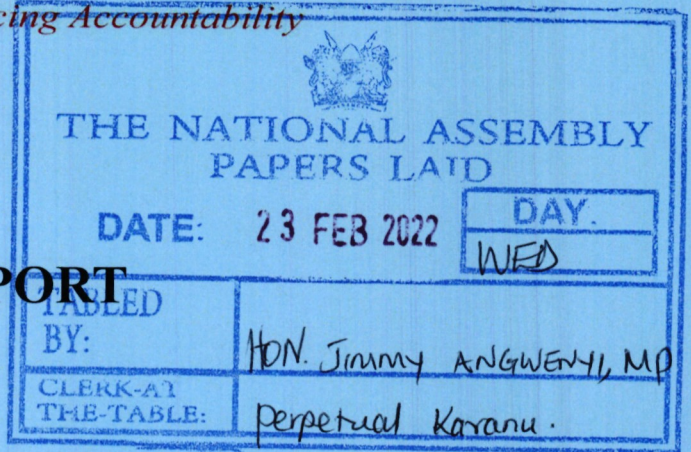 cing Accountability
THE NATIONAL ASSEMBLY
PAPERS LAID
DATE: 23 FEB 2022
DAY.
WED
PORT
TABLED
BY:
HON. Jimmy ANGWENYI, MP
CLERK-AT
THE-TABLE:
perpetual Karanu.